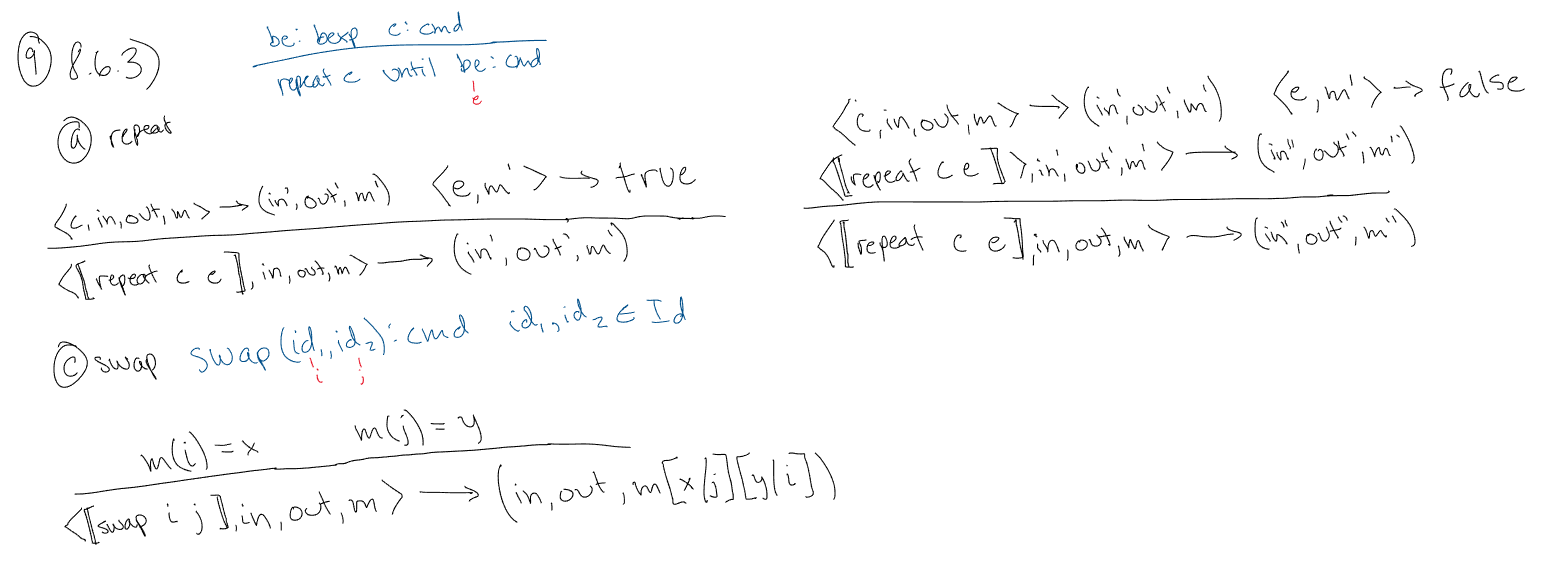 ⑨ 8.6.3)
be: bexp c: cmd
repeat c until be: cmd
e
ⓐ repeat
⟨c, in, out, m⟩ → (in', out', m') ⟨e, m'⟩ → true
⟨⟦repeat c e⟧, in, out, m⟩ → (in', out', m')
⟨c, in, out, m⟩ → (in', out', m') ⟨e, m'⟩ → false
⟨⟦repeat c e⟧⟩, in', out', m'⟩ → (in'', out'', m'')
⟨⟦repeat c e⟧, in, out, m⟩ → (in'', out'', m'')
ⓒ swap swap(id₁, id₂): cmd id₁, id₂ ∈ Id
i j
m(i) = x m(j) = y
⟨⟦swap i j⟧, in, out, m⟩ → (in, out, m[x/j][y/i])